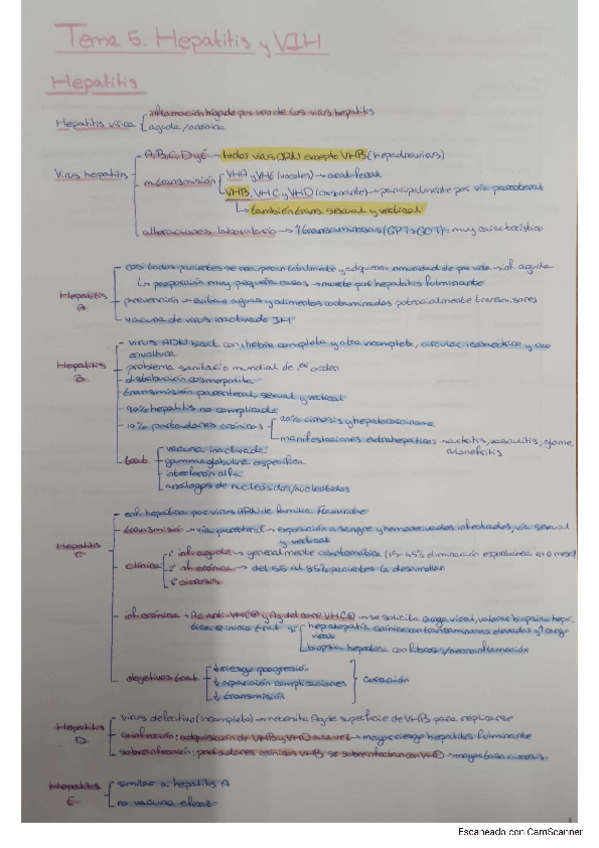 Tema 5. Hepatitis y VIH
Hepatitis
Hepatitis vírica
inflamación hígado por uno de los virus hepatitis
aguda/crónica
Virus hepatitis
A, B, C, D y E → todos virus ARN excepto VHB (hepadnavirus)
transmisión
VHA y VHE (vocales) → oral-fecal
VHB, VHC y VHD (consonante) → principalmente por vía parenteral
↳ también trans. sexual y vertical
alteraciones laboratorio → ↑ transaminasas (GPT>GOT): muy característico
Hepatitis A
casi todos pacientes se recuperan totalmente y adquieren inmunidad de por vida → inf. aguda
↳ proporción muy pequeña casos → muerte por hepatitis fulminante
prevención → evitar aguas y alimentos contaminados potencialmente transmisores
vacuna de virus inactivado IM
Hepatitis B
virus ADN bicat. con hebra completa y otra incompleta, circular, icosaédrico y con
envoltura
problema sanitario mundial de 1er orden
distribución cosmopolita
transmisión parenteral, sexual y vertical
90% hepatitis no complicada
10% portadores crónicos
20% cirrosis y hepatocarcinoma
manifestaciones extrahepáticas → artritis, vasculitis, glome
rulonefritis
trat.
vacuna inactivada
gammaglobulina específica
interferón alfa
análogos de nucleósidos/nucleótidos
Hepatitis C
enf. hepática por virus ARN de familia Flaviviridae
transmisión → vía parenteral → exposición a sangre y hemoderivados infectados, vía sexual
y vertical
clínica
1º inf. aguda → generalmente asintomática (15-45% eliminación espontánea en 6 mese)
2º inf. crónica → del 55 al 85% pacientes la desarrollan
3º cirrosis
inf. crónica → Ac anti-VHC⊕ y Ag del core VHC⊕ → se solicita carga viral, valorar biopsia hepá
tica e inicio trat. si
hepatopatía crónica con transaminasas elevadas y ↑ carga
viral
biopsia hepática con fibrosis/necroinflamación
objetivos trat.
↓ riesgo progresión
↓ aparición complicaciones
↓ transmisión
curación
Hepatitis D
virus defectivo (incompleto) → necesita Ag de superficie de VHB para replicarse
coinfección: adquisición de VHB y VHD a la vez → mayor riesgo hepatitis fulminante
sobreinfección: portadores crónicos VHB se sobreinfectan con VHD → mayor tasa cirrosis
Hepatitis E
similar a hepatitis A
no vacuna eficaz
Escaneado con CamScanner